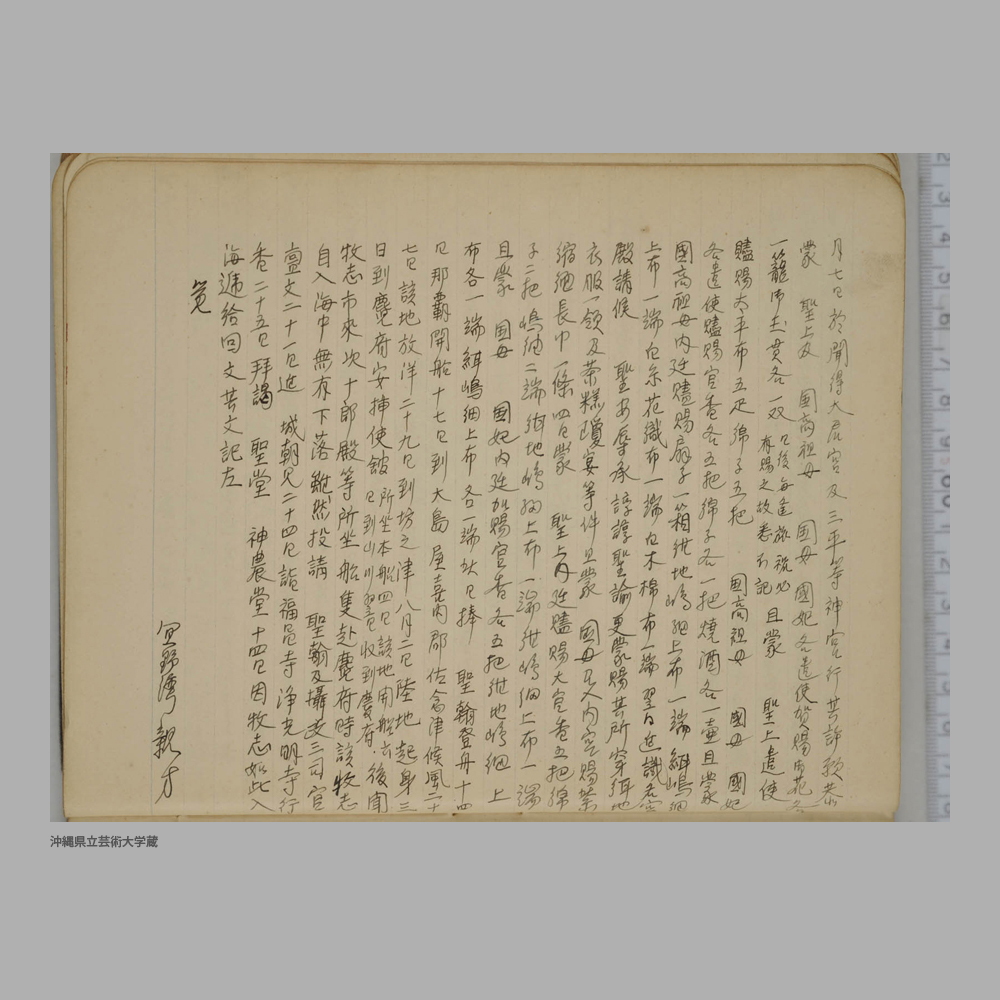 月七日於聞得大君宮及三平等神宮行其許願恭
蒙 聖上及 国高祖母 国母 國妃各遣使賀賜内花各
一籠御玉貫各一双 日後毎逢旅祝必有賜之故悉不記 且蒙 聖上遣使
贐賜太平布五疋綿子五把 国高祖母 國母 國妃
各遣使贐賜官香各五把綿子各一把焼酒各一壷且蒙
國高祖母内廷贐賜扇子一箱紺地嶋細上布一端 嶋細
上布一端白糸花織布一端白木棉布一端翌日進識名宮
殿請候 聖安辱承諄諄聖諭更蒙賜其所穿 地
衣服一領及茶糕瓊宴等件且蒙 國母 人内宮賜紫
縮緬長巾一條四日蒙 聖上内廷贐賜大官香五把綿
子二把嶋紬二端 地嶋細上布一端紺嶋細上布一端
且蒙 国母 國妃内廷加賜官香各五把紺地嶋細上
布各一端 嶋細上布各一端 日捧 聖翰登舟十四
日那覇開船十七日到大島屋喜内郡佐倉津候風二十
七日該地放洋二十九日到坊之津八月二日陸地起身三
日到麑府安挿使館 所坐本船四日該地開船六日到山川翌日収到麑府 後聞
牧志市來次十郎殿等所坐船隻赴麑府時該牧志
自入海中無有下落雖然投請 聖翰及攝政三司官
稟文二十一日進 城朝見二十四日詣福昌寺浄光明寺行
香二十五日拜謁 聖堂 神農堂十四日因牧志如此入
海遞給回文其文記左
覚
宜野湾親方
沖縄県立芸術大学蔵